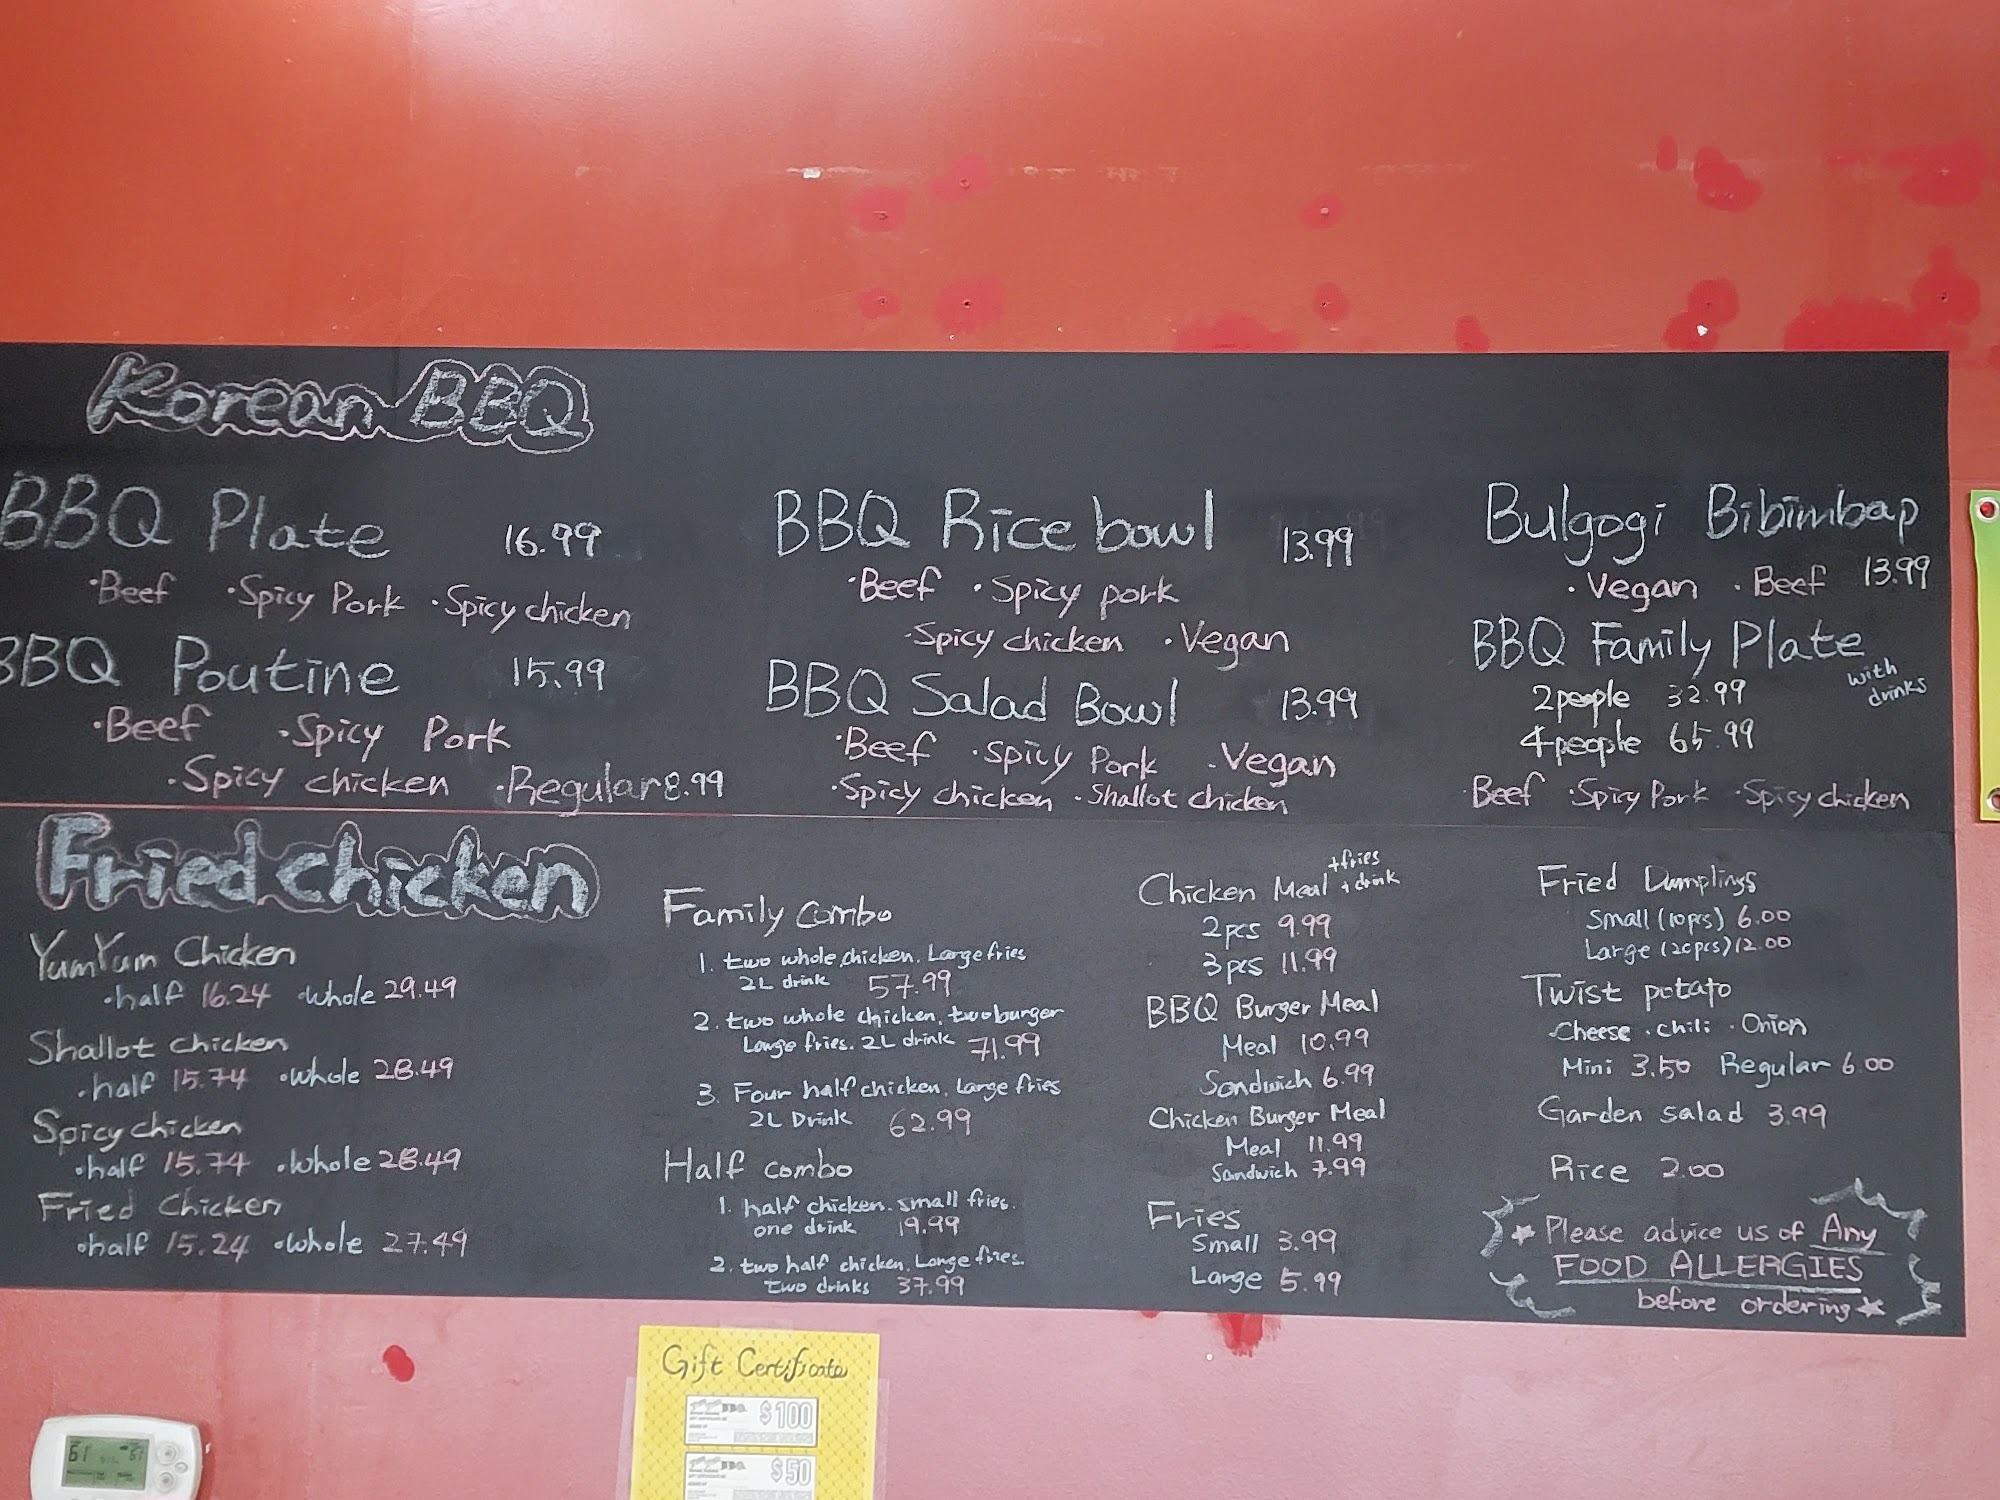 Korean BBQ
BBQ Plate 16.99
·Beef ·Spicy Pork ·Spicy chicken
BBQ Poutine 15.99
·Beef ·Spicy Pork
·Spicy chicken ·Regular 8.99
BBQ Rice bowl 13.99
·Beef ·Spicy pork
·Spicy chicken ·Vegan
BBQ Salad Bowl 13.99
·Beef ·Spicy Pork ·Vegan
·Spicy chicken ·Shallot chicken
Bulgogi Bibimbap
·Vegan ·Beef 13.99
BBQ Family Plate
with
drinks
2people 32.99
4people 65.99
·Beef ·Spicy Pork ·Spicy chicken
Fried chicken
YumYum Chicken
·half 16.24 ·whole 29.49
Shallot chicken
·half 15.74 ·whole 28.49
Spicy chicken
·half 15.74 ·whole 28.49
Fried chicken
·half 15.24 ·whole 27.49
Family combo
1. two whole chicken. Large fries
2L drink 57.99
2. two whole chicken. two burger
Large fries. 2L drink 71.99
3. Four half chicken. Large fries
2L Drink 62.99
Half combo
1. half chicken. small fries.
one drink 19.99
2. two half chicken. Large fries.
two drinks 37.99
Chicken Meal +fries
+drink
2pcs 9.99
3pcs 11.99
BBQ Burger Meal
Meal 10.99
Sandwich 6.99
Chicken Burger Meal
Meal 11.99
Sandwich 7.99
Fries
Small 3.99
Large 5.99
Fried Dumplings
Small (10pcs) 6.00
Large (20pcs) 12.00
Twist potato
·Cheese ·Chili ·Onion
Mini 3.50 Regular 6.00
Garden salad 3.99
Rice 2.00
★ Please advice us of Any
FOOD ALLERGIES
before ordering ★
Gift Certificate
BBQ $100
BBQ $50
61